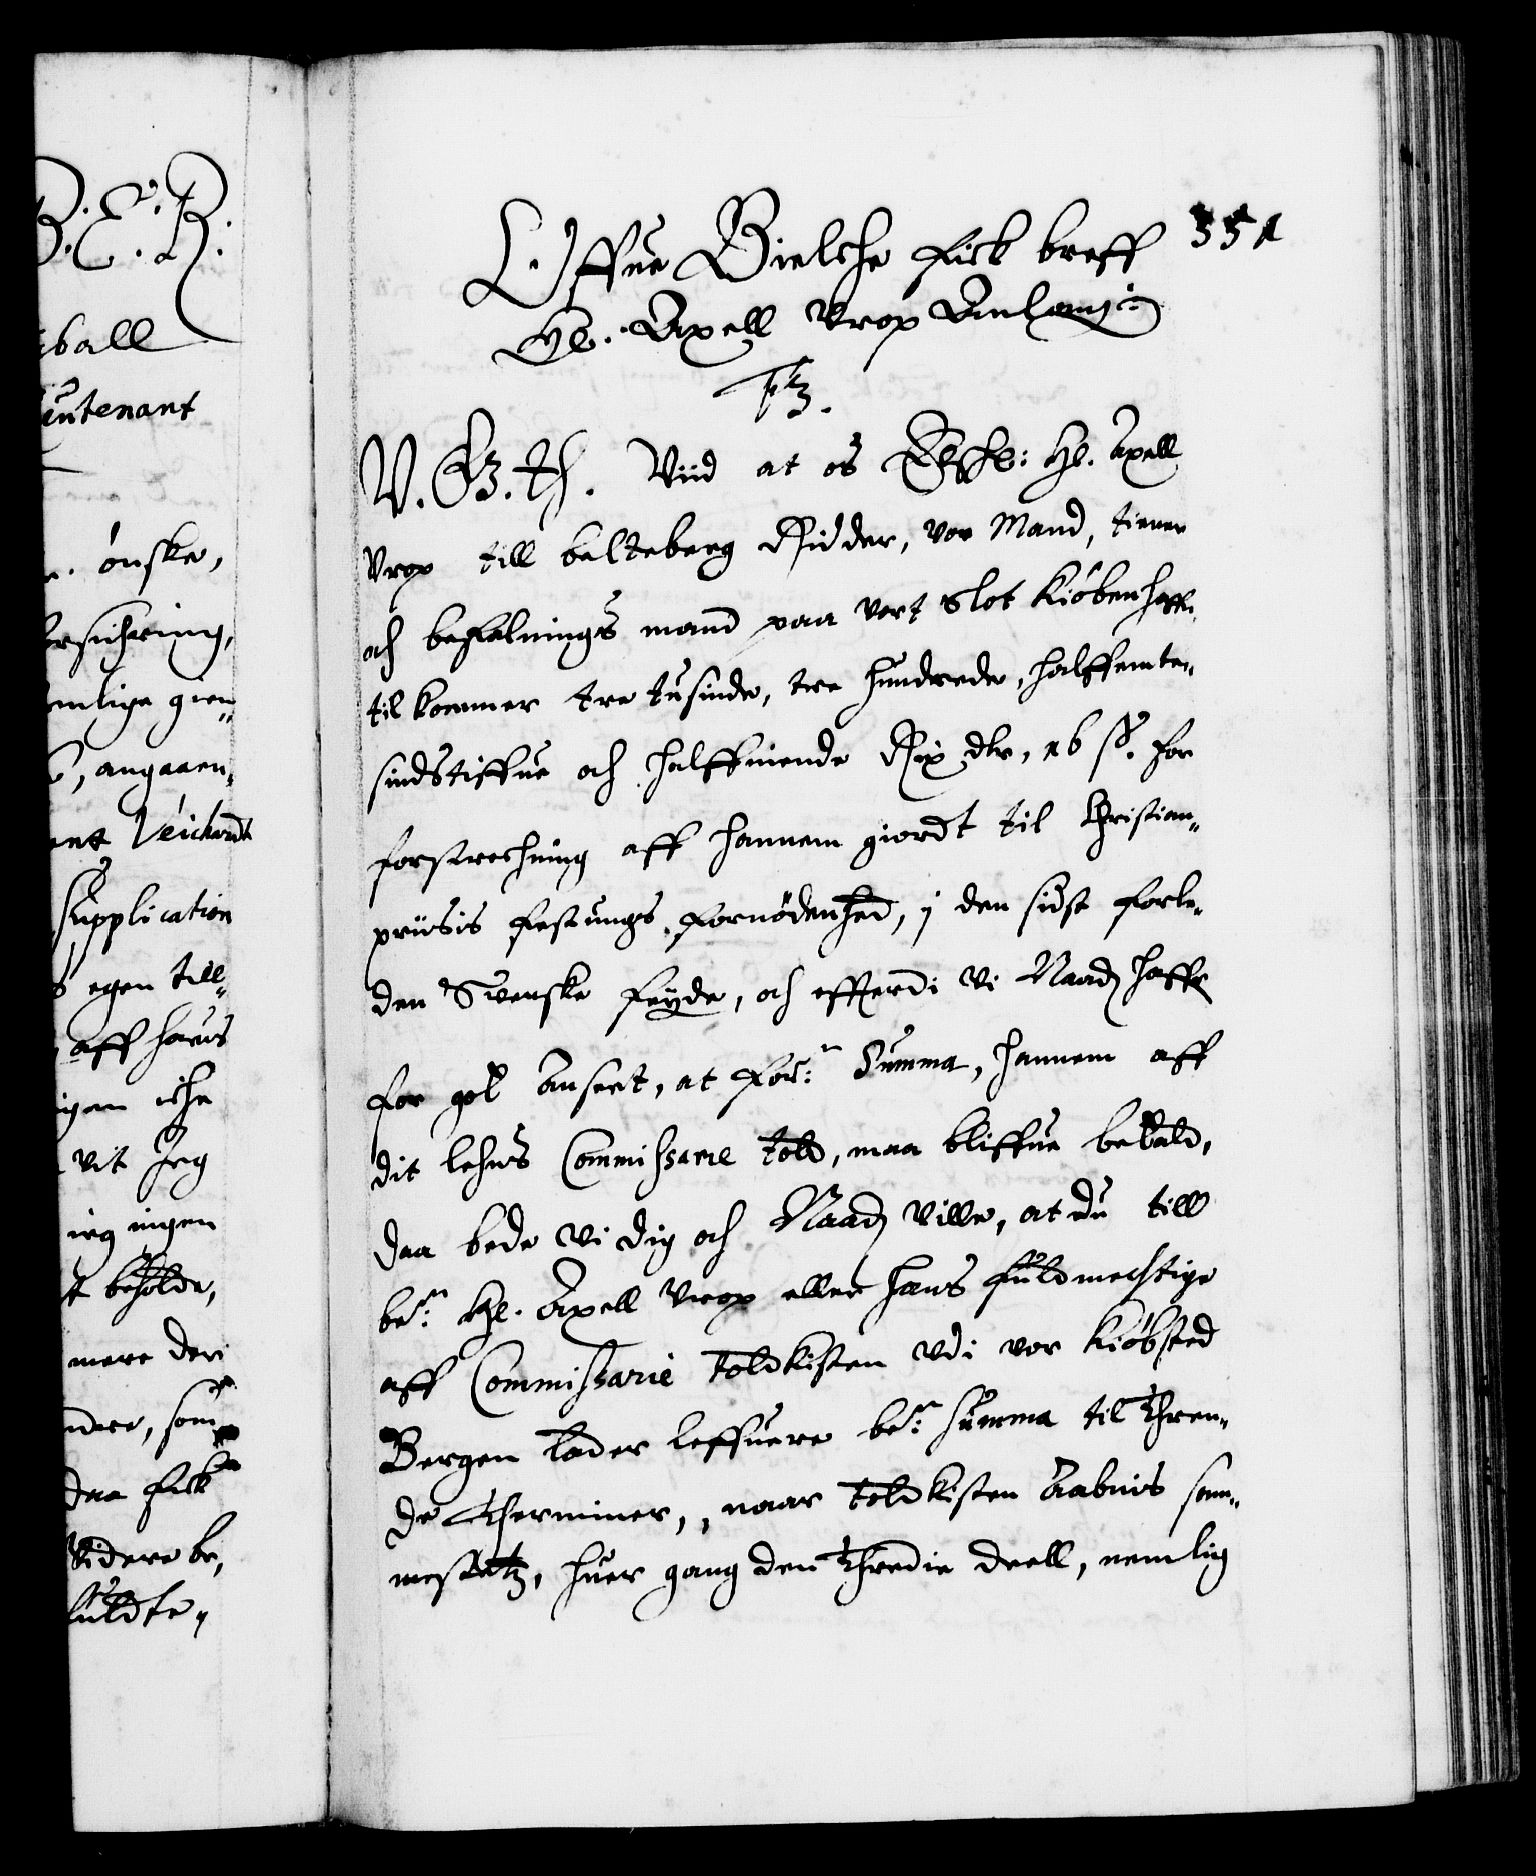 B. E. R.
ball
eutenant
. ønske,
rsichring,
emlige gien„
, angaaen„
ant Veichardt
Supplication
egen till„
aff hans
igen iche
vit Jeg
ieg ingen
t beholde,
mere der
ndre, som
daa fick
Videre be,
fuldte,
351
Offue Bielche fick breff
Hr. Axell Vrop Anlang:
V. G. t. Viid at os Elshe: Hr. Axell
Vrop till belteberg Ridder, vor Mand, tiener
och befalnings mand paa vort Slot Kiøbenhaffn
tilkommer tre tusinde, tre hundrede, halffemte„
sindstiffue och halffniende Rix dlr, 16 ß. for
forstrechning aff hannem giordt til Christian„
priisis festungs fornødenhed, j den sidst forle„
den Svenske feyde, och efftterdi vi Naad haffr
for got Anseet, at for:n Summa, hannem aff
dit lehns Commissarie told, maa bliffue betald,
Daa bede vi dig och Naad ville, at du till
be:n Hr. Axell Vrop eller hans fuldmechtige
aff Commissarie Toldkisten vdi vor kiøbsted
Bergen lader leffuere be:n Summa til Thren„
de Therminer, naar toldkisten Aabnis som„
mestetz, huer gang den Thredie deell, nemlig